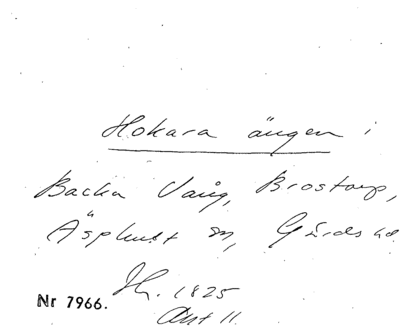 Hokara ängen i
Backa Vång, Brostorp,
Äsphult sn, Gärds hd
Nr 7966.
Jh. 1825
Akt 11